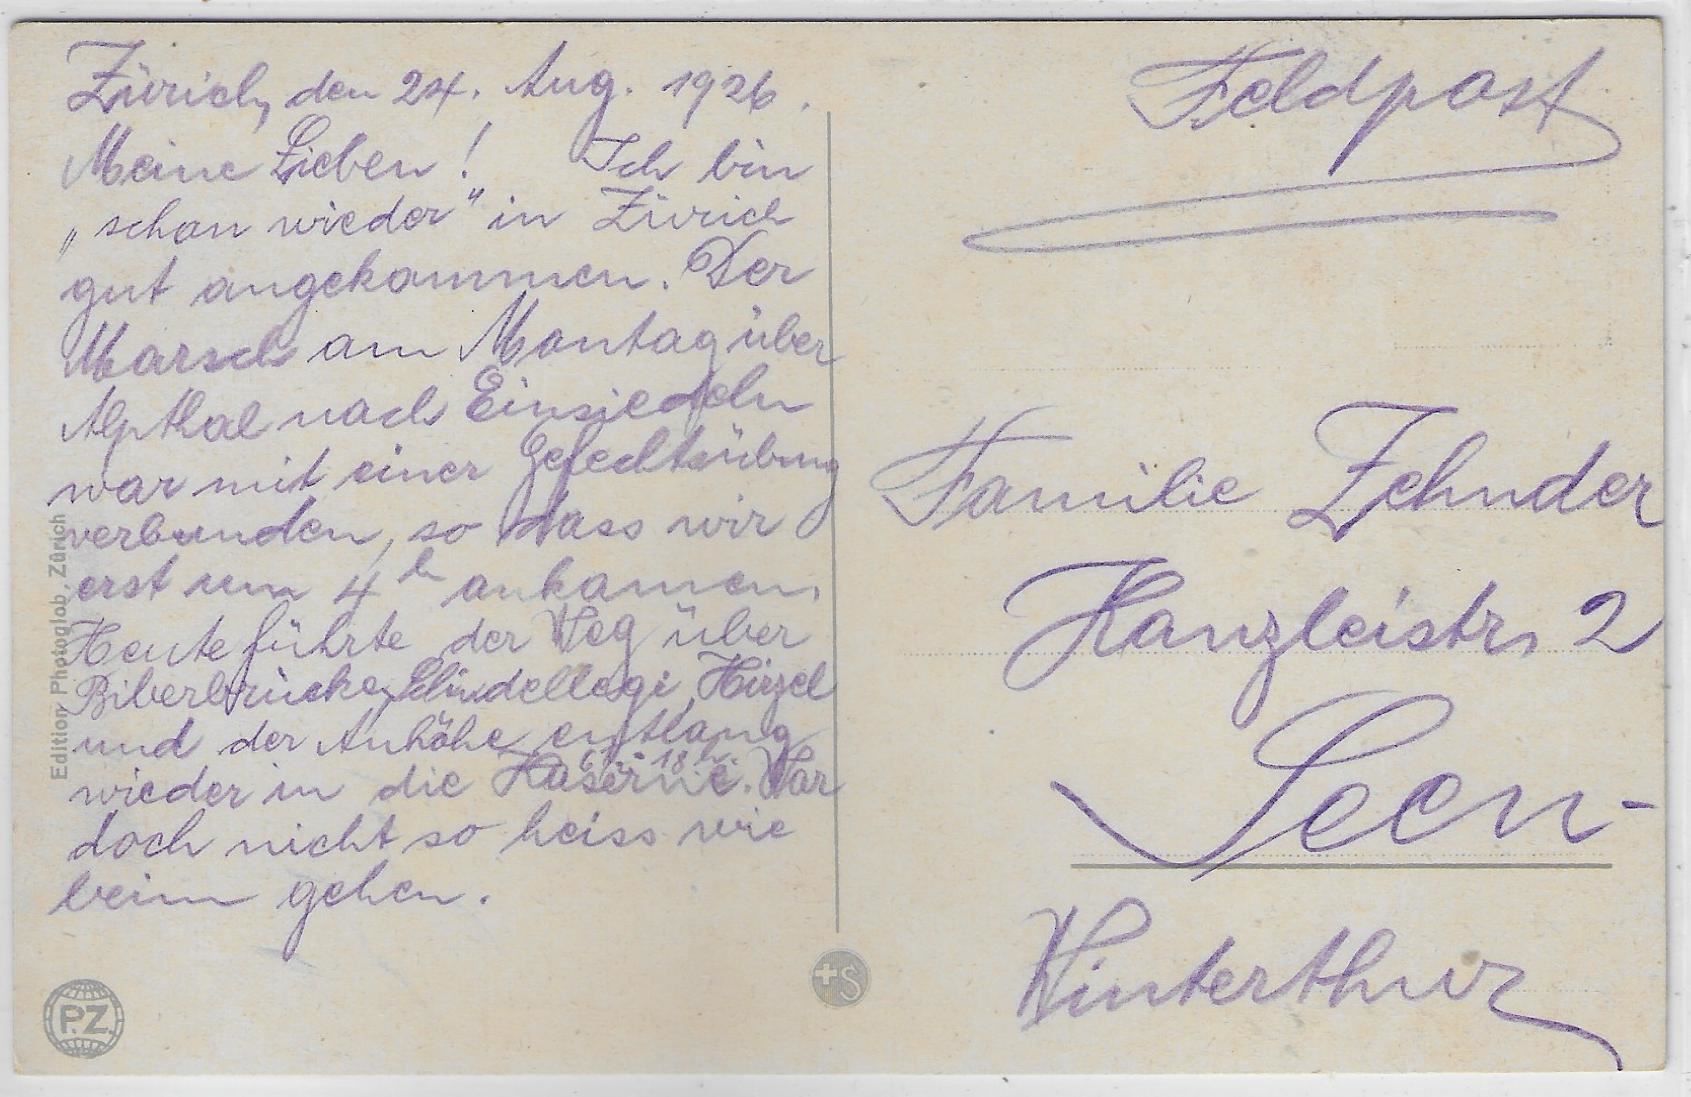 Zürich, den 24. Aug. 1926.
Meine Lieben! Ich bin
„schon wieder“ in Zürich
gut angekommen. Der
Marsch am Montag über
Alpthal nach Einsiedeln
war mit einer Gefechtsübung
verbunden, so dass wir
erst um 4 h ankamen.
Heute führte der Weg über
Biberbrücke, Schindellegi, Hirzel
und der Anhöhe entlang
18 h.
wieder in die Kaserne. War
doch nicht so heiss wie
beim gehen.
Edition Photoglob, Zürich
P.Z.
+S
Feldpost
Familie Zehnder
Kanzleistr. 2
Seen-
Winterthur